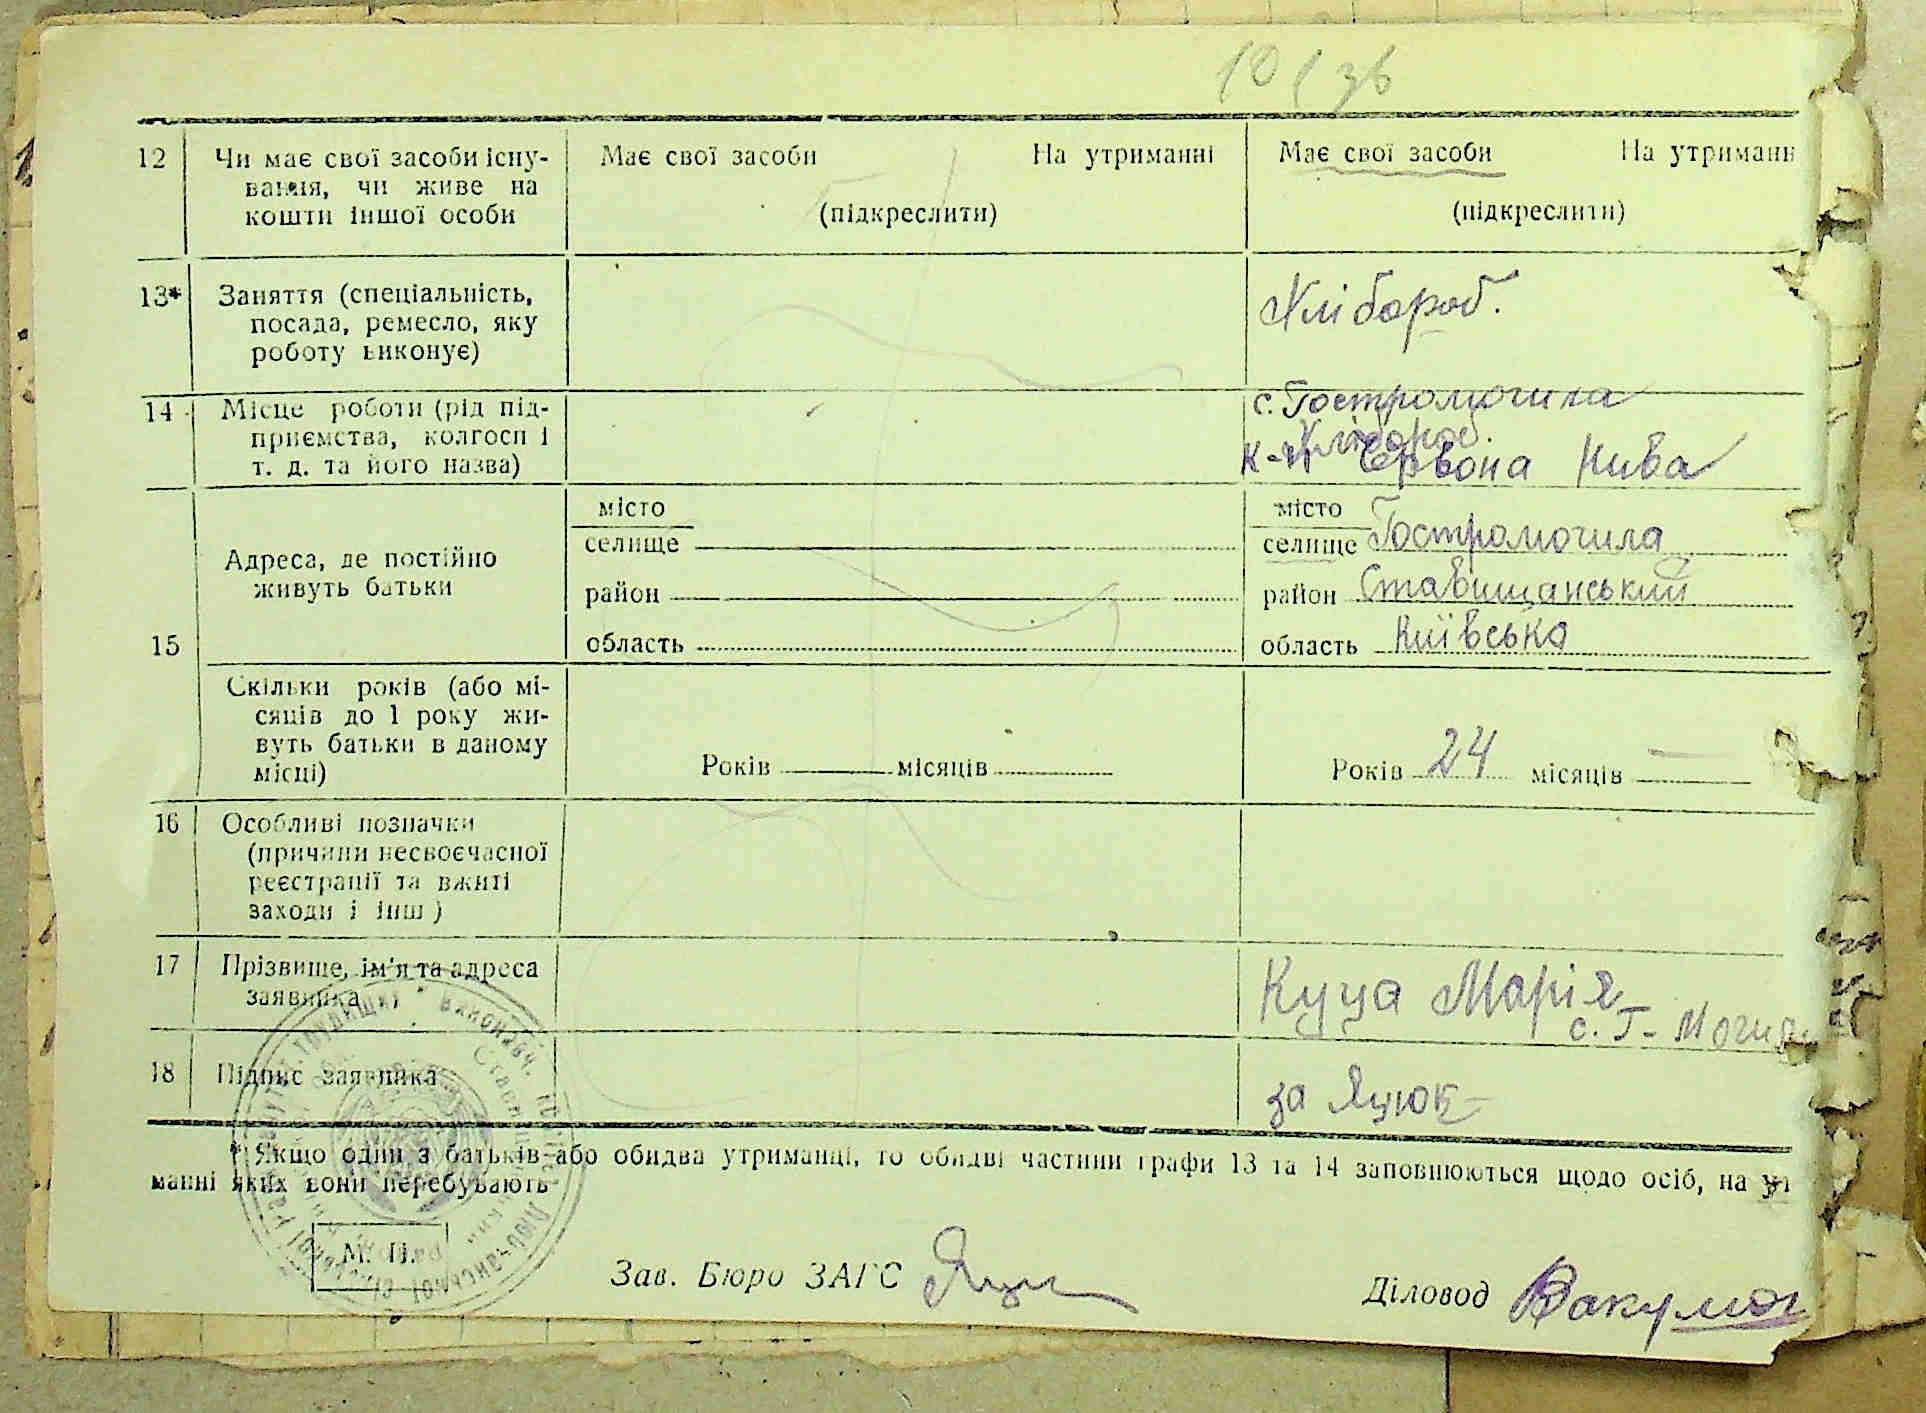 12 Чи має свої засоби існу-
вання, чи живе на
кошти іншої особи
Має свої засоби На утриманні
(підкреслити)
Має свої засоби На утриманн
(підкреслити)
13* Заняття (спеціальність,
посада, ремесло, яку
роботу виконує)
Хлібороб.
14 Місце роботи (рід під-
приємства, колгосп і
т. д. та його назва)
с. Гостромогила
Хлібороб.
к-п Червона Нива
15
Адреса, де постійно
живуть батьки
місто
селище
район
область
місто
селище Гостромогила
район Ставищанський
область Київська
Скільки років (або мі-
сяців до 1 року жи-
вуть батьки в даному
місці)
Років місяців
Років 24 місяців —
16 Особливі позначки
(причини несвоєчасної
реєстрації та вжиті
заходи і інш)
17 Прізвище, ім'я та адреса
заявника
Куца Марія
с. Г-Могила
18 Підпис заявника
за Яцюк
* Якщо один з батьків або обидва утриманці, то обидві частини графи 13 та 14 заповнюються щодо осіб, на ут
манні яких вони перебувають
М. П.
Зав. Бюро ЗАГС
Діловод